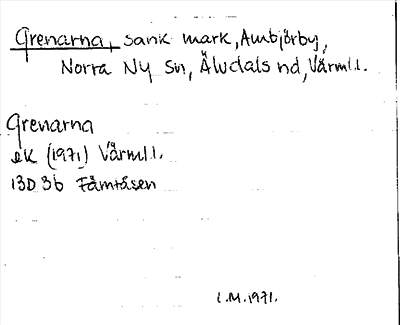 Grenarna, sank mark, Ambjörby,
Norra Ny sn, Älvdals hd, Värml.l.
Grenarna
ek (1971) Värml.l.
13D 3b Fämtåsen
L.M. 1971.